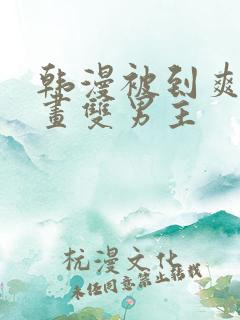 韩漫被到爽
畫雙男主
杭漫文化
未经同意禁止转载